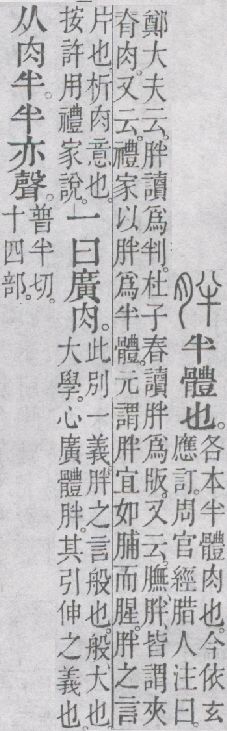 胖 半體也。各本半體肉也。今依玄
應訂。周官經腊人注曰。
鄭大夫云。胖讀爲判。杜子春讀胖爲版。又云。膴胖皆謂夾
脊肉。又云。禮家以胖爲半體。元謂胖宜如脯而腥。胖之言
片也。析肉意也。
按許用禮家說。
一曰廣肉。
此別一義。胖之言般也。般大也。
大學。心廣體胖。其引伸之義也。
从肉半。半亦聲。
普半切。
十四部。